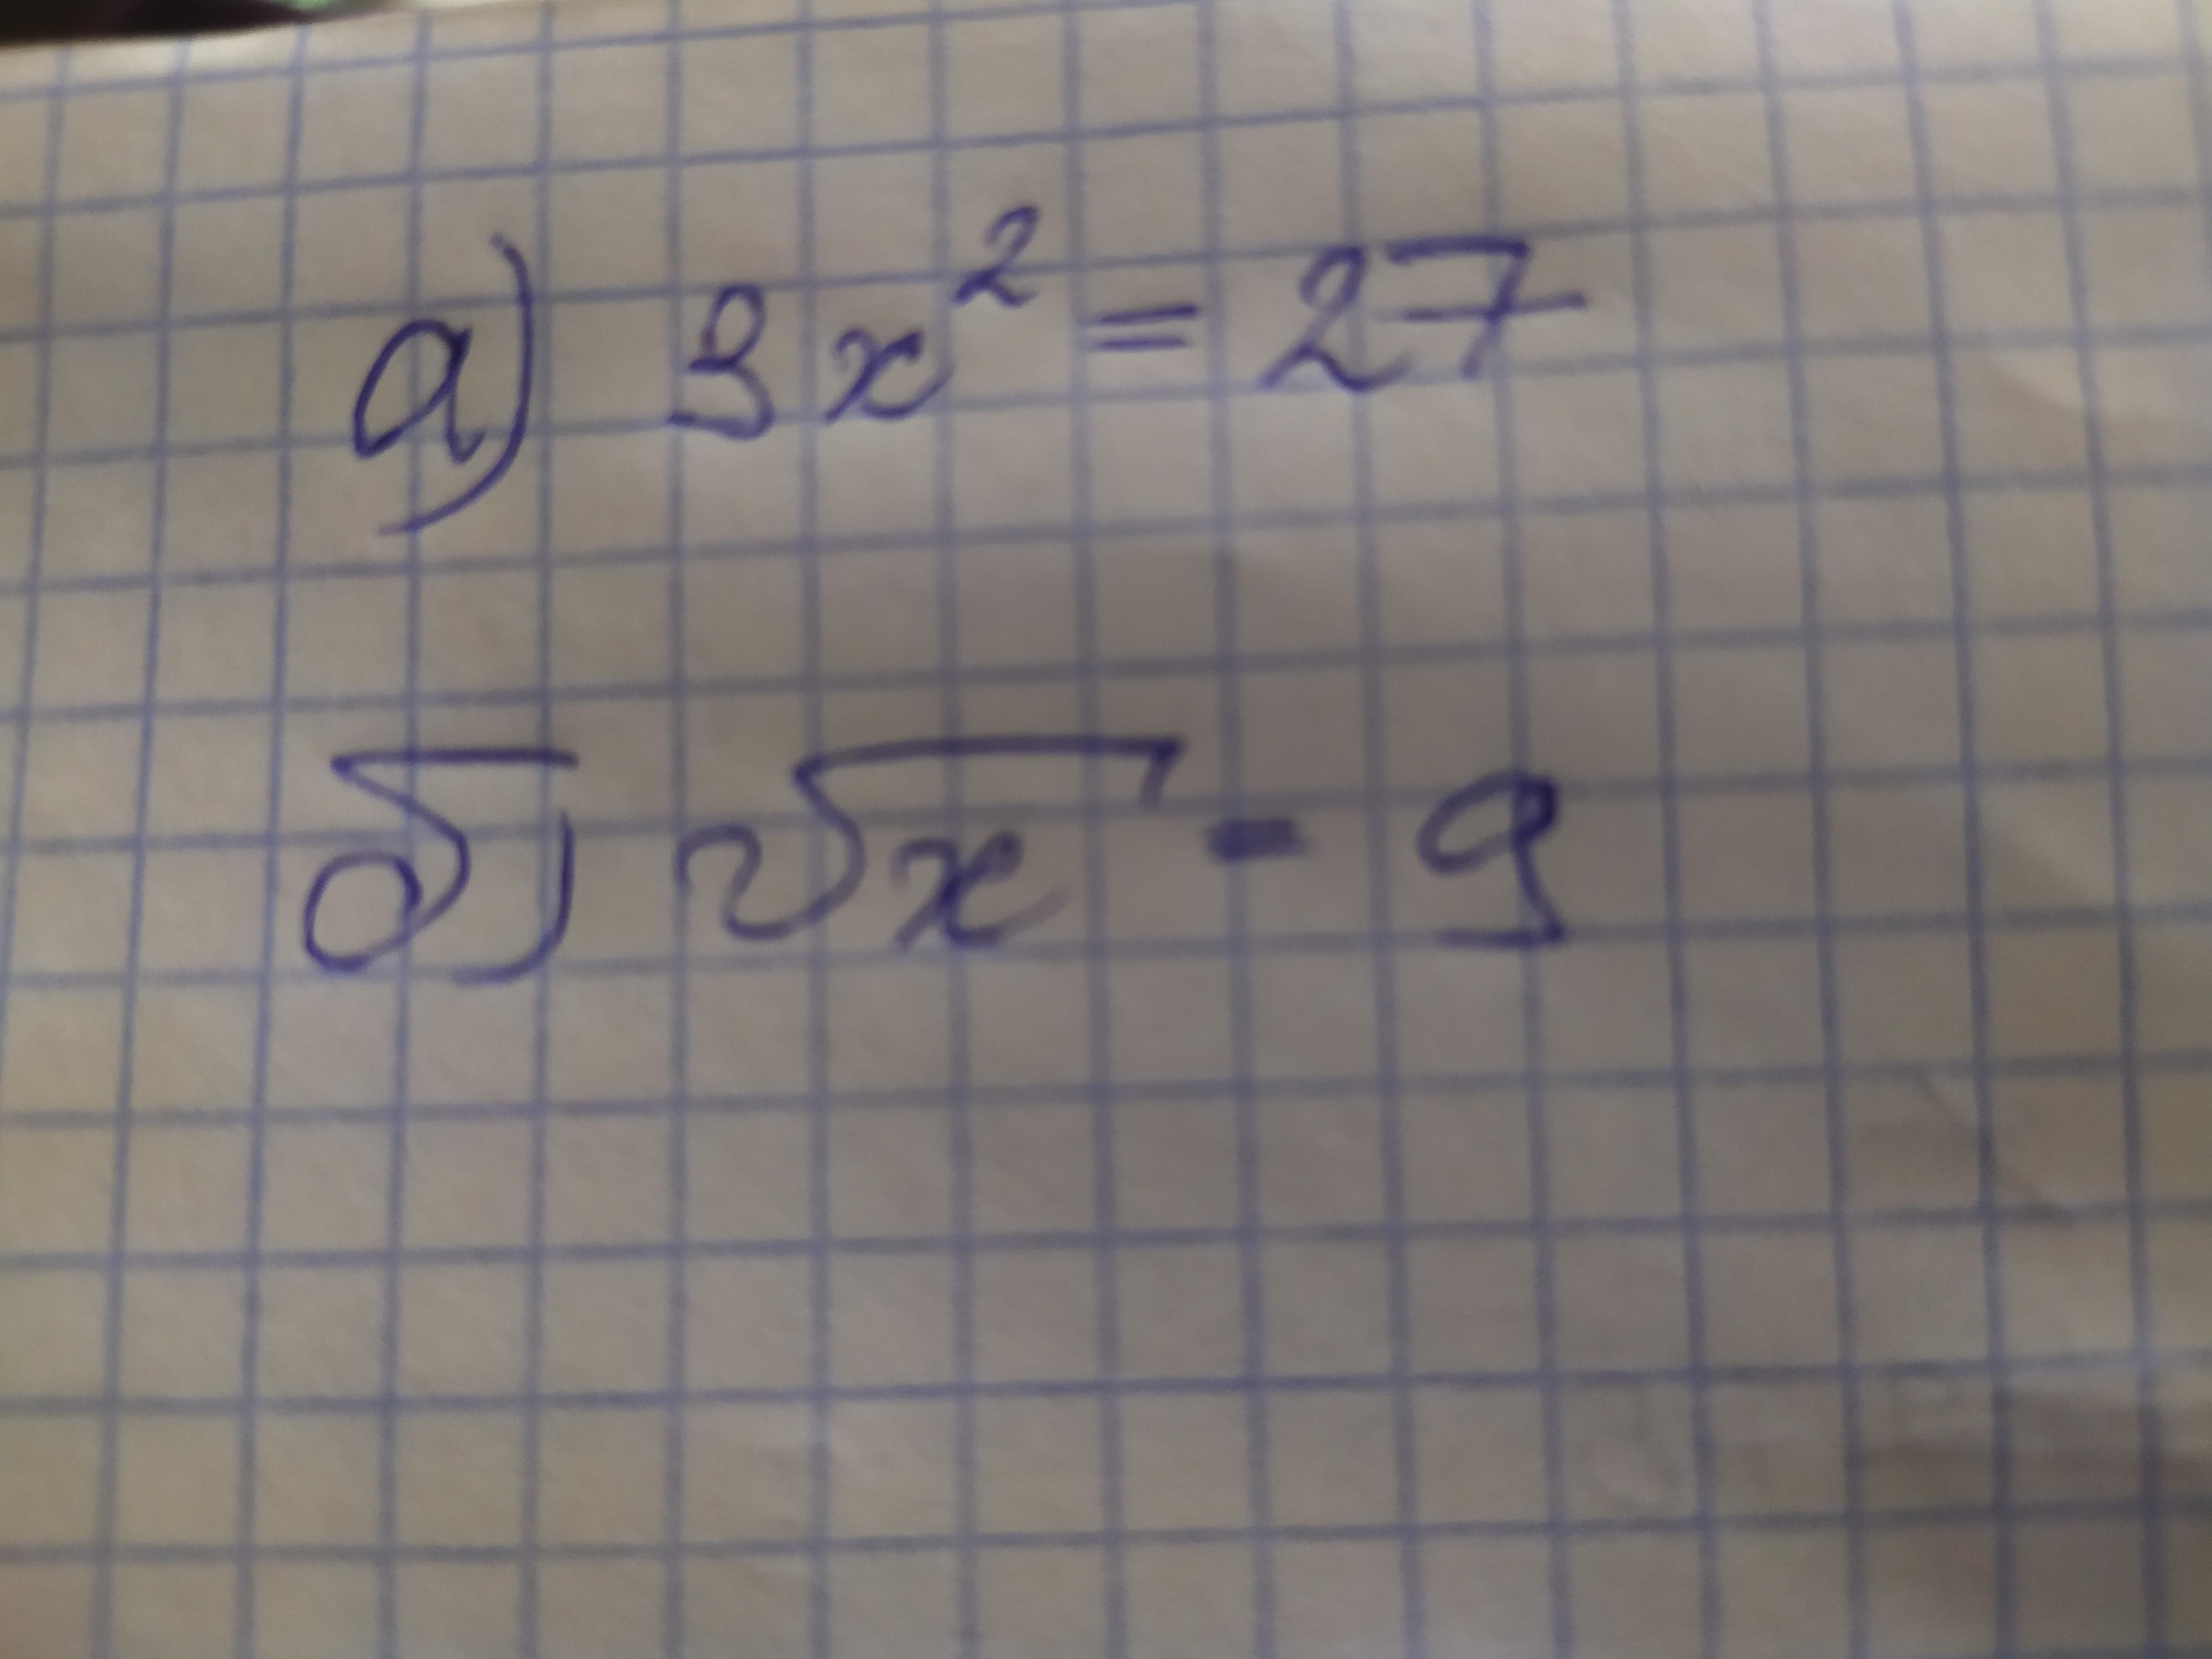 а) 3x² = 27
б) √x - 9